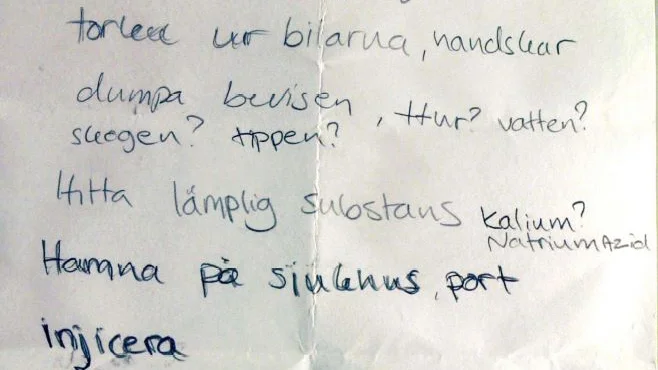 torka ur bilarna, handskar
dumpa bevisen, Hur? vatten?
skogen? tippen?
Hitta lämplig substans Kalium?
Natriumazid
Hamna på sjukhus, port
injicera